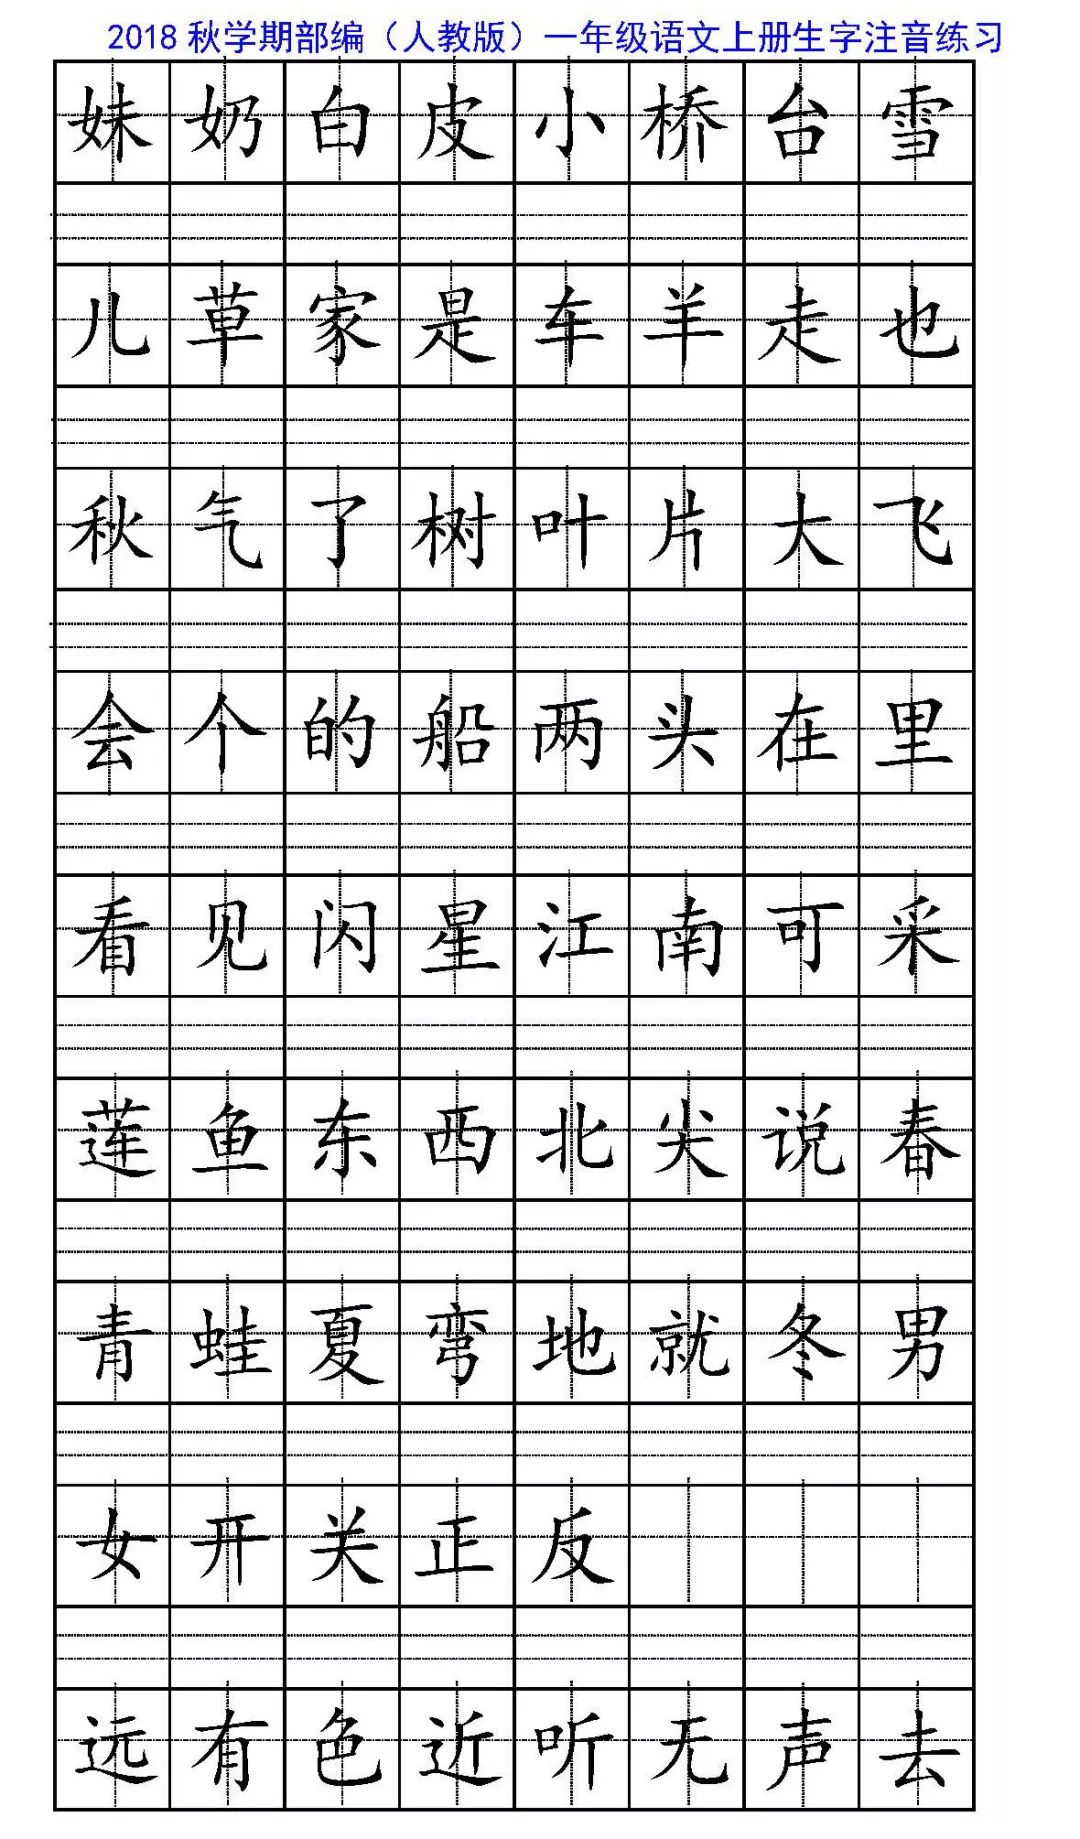 2018 秋学期部编（人教版）一年级语文上册生字注音练习
妹 奶 白 皮 小 桥 台 雪
儿 草 家 是 车 羊 走 也
秋 气 了 树 叶 片 大 飞
会 个 的 船 两 头 在 里
看 见 闪 星 江 南 可 采
莲 鱼 东 西 北 尖 说 春
青 蛙 夏 弯 地 就 冬 男
女 开 关 正 反
远 有 色 近 听 无 声 去